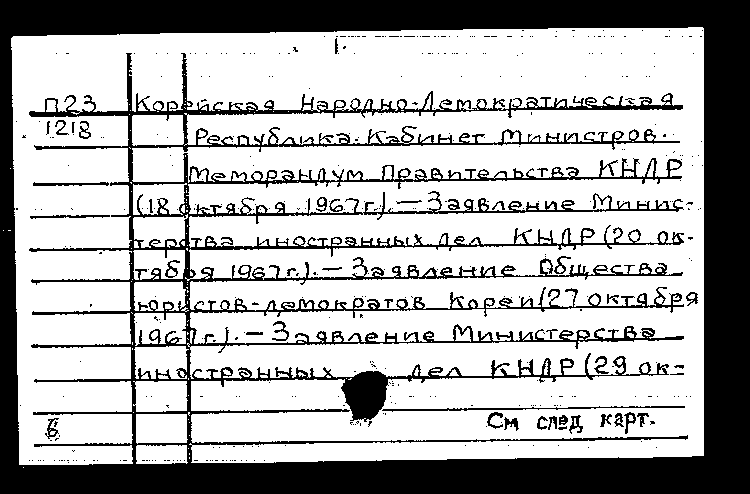 П23 Корейская Народно-Демократическая
1218 Республика. Кабинет Министров.
Меморандум Правительства КНДР
(18 октября 1967г.). — Заявление Минис-
терства иностранных дел КНДР (20 ок-
тября 1967г.). — Заявление Общества
юристов-демократов Кореи (27 октября
1967г.). — Заявление Министерства
иностранных дел КНДР (29 ок-
См след, карт.